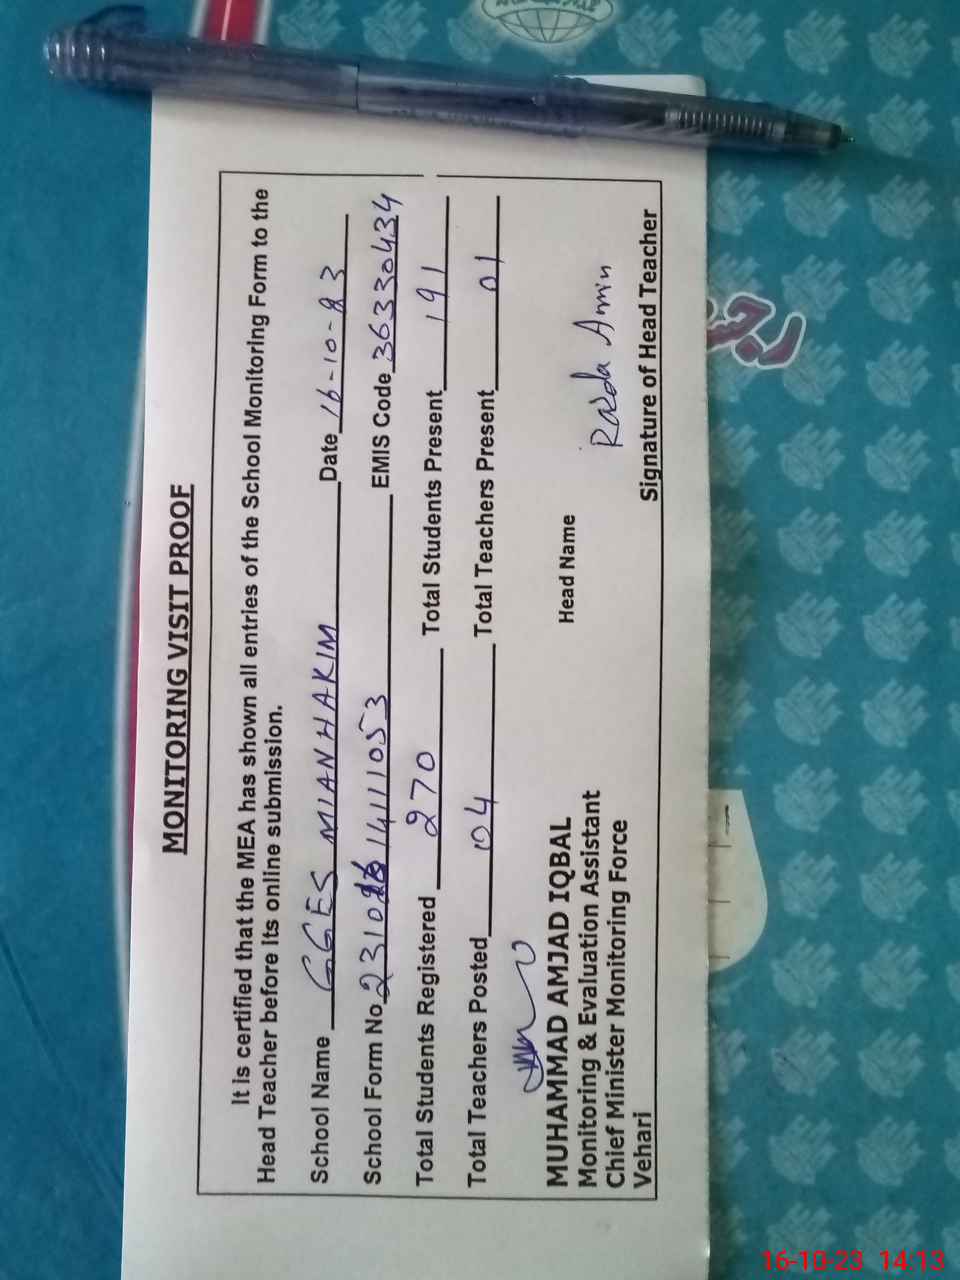 MONITORING VISIT PROOF
It is certified that the MEA has shown all entries of the School Monitoring Form to the
Head Teacher before its online submission.
School Name GGES MIANHAKIM Date 16-10-23
School Form No 231016 14111053 EMIS Code 36330434
Total Students Registered 270 Total Students Present 191
Total Teachers Posted 04 Total Teachers Present 01
MUHAMMAD AMJAD IQBAL
Monitoring & Evaluation Assistant
Chief Minister Monitoring Force
Vehari
Head Name
Amin
Signature of Head Teacher
16-10-23 14:13